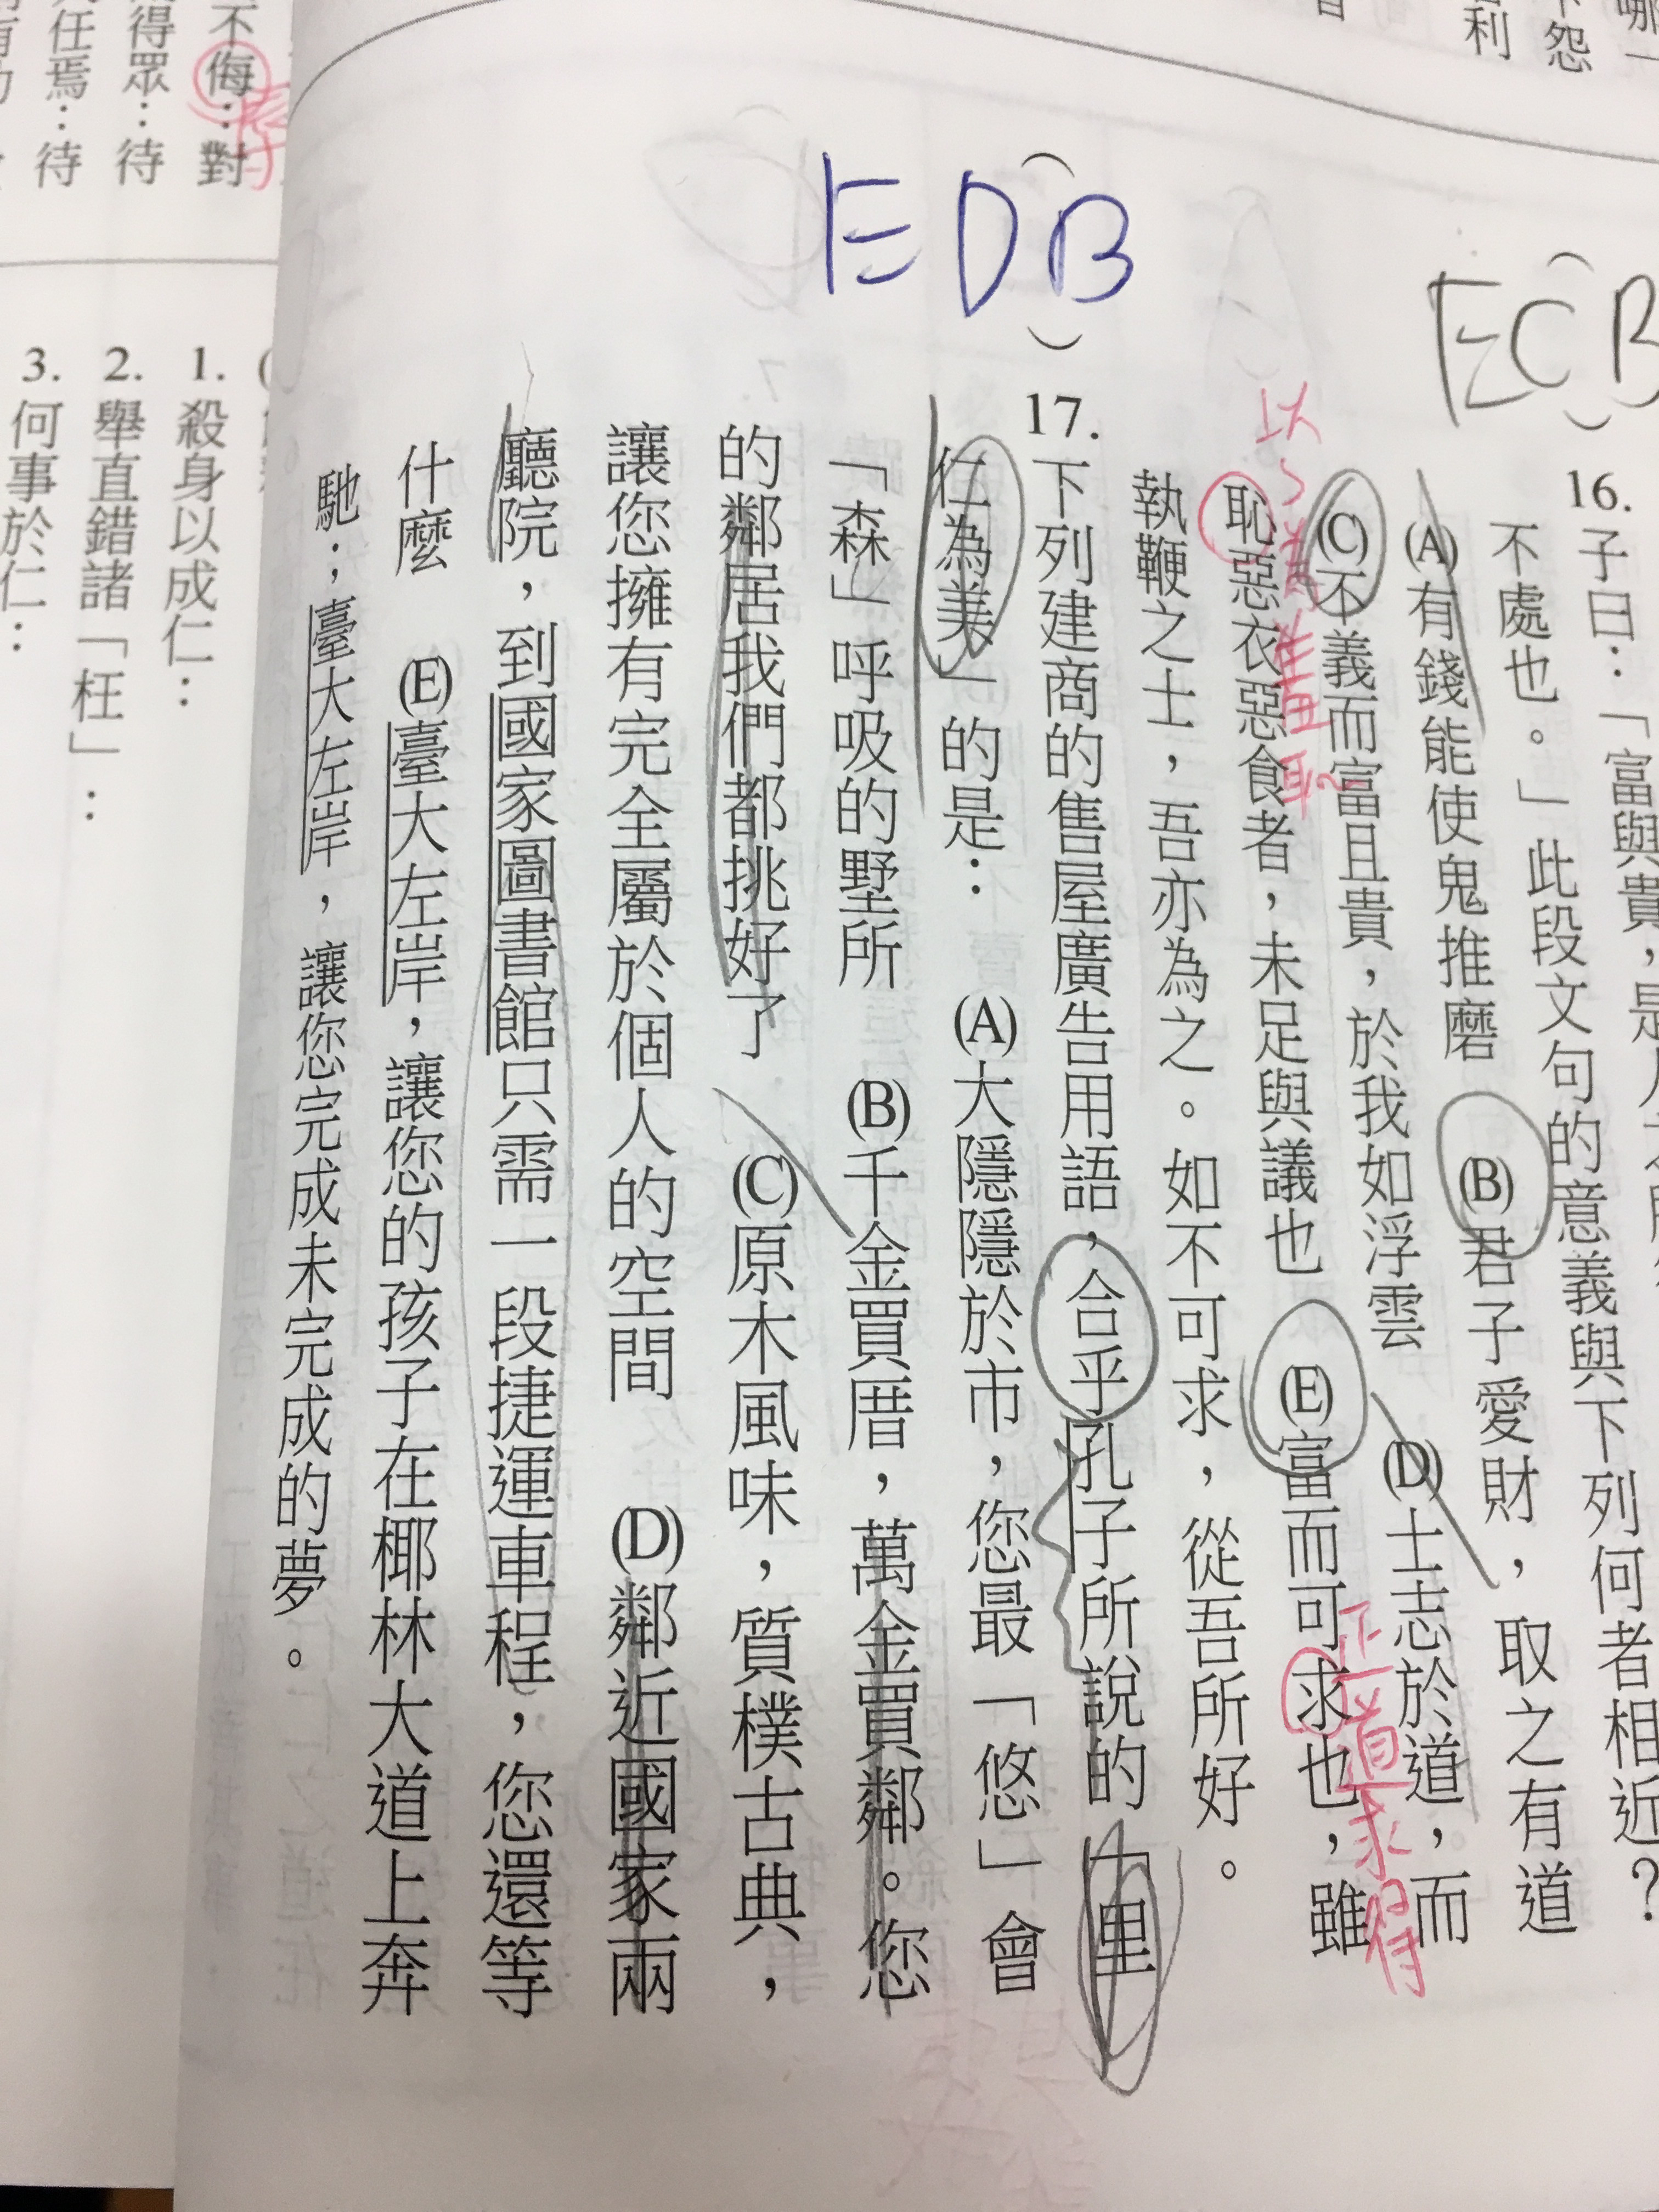 哪
不怨
利
ECB
16. 子曰：「富與貴，是人之所
不處也。」此段文句的意義與下列何者相近？
(A)有錢能使鬼推磨 (B)君子愛財，取之有道
(C)不義而富且貴，於我如浮雲 (D)士志於道，而
恥惡衣惡食者，未足與議也 (E)富而可求也，雖
執鞭之士，吾亦為之。如不可求，從吾所好。
正道求得
以
EDB
17. 下列建商的售屋廣告用語，合乎孔子所說的「里
仁為美」的是： (A)大隱隱於市，您最「悠」會
「森」呼吸的墅所 (B)千金買厝，萬金買鄰。您
的鄰居我們都挑好了 (C)原木風味，質樸古典，
讓您擁有完全屬於個人的空間 (D)鄰近國家兩
廳院，到國家圖書館只需一段捷運車程，您還等
什麼 (E)臺大左岸，讓您的孩子在椰林大道上奔
馳；臺大左岸，讓您完成未完成的夢。
不侮：對
得眾：待
任焉：待
1. 殺身以成仁：
2. 舉直錯諸「枉」：
3. 何事於仁：